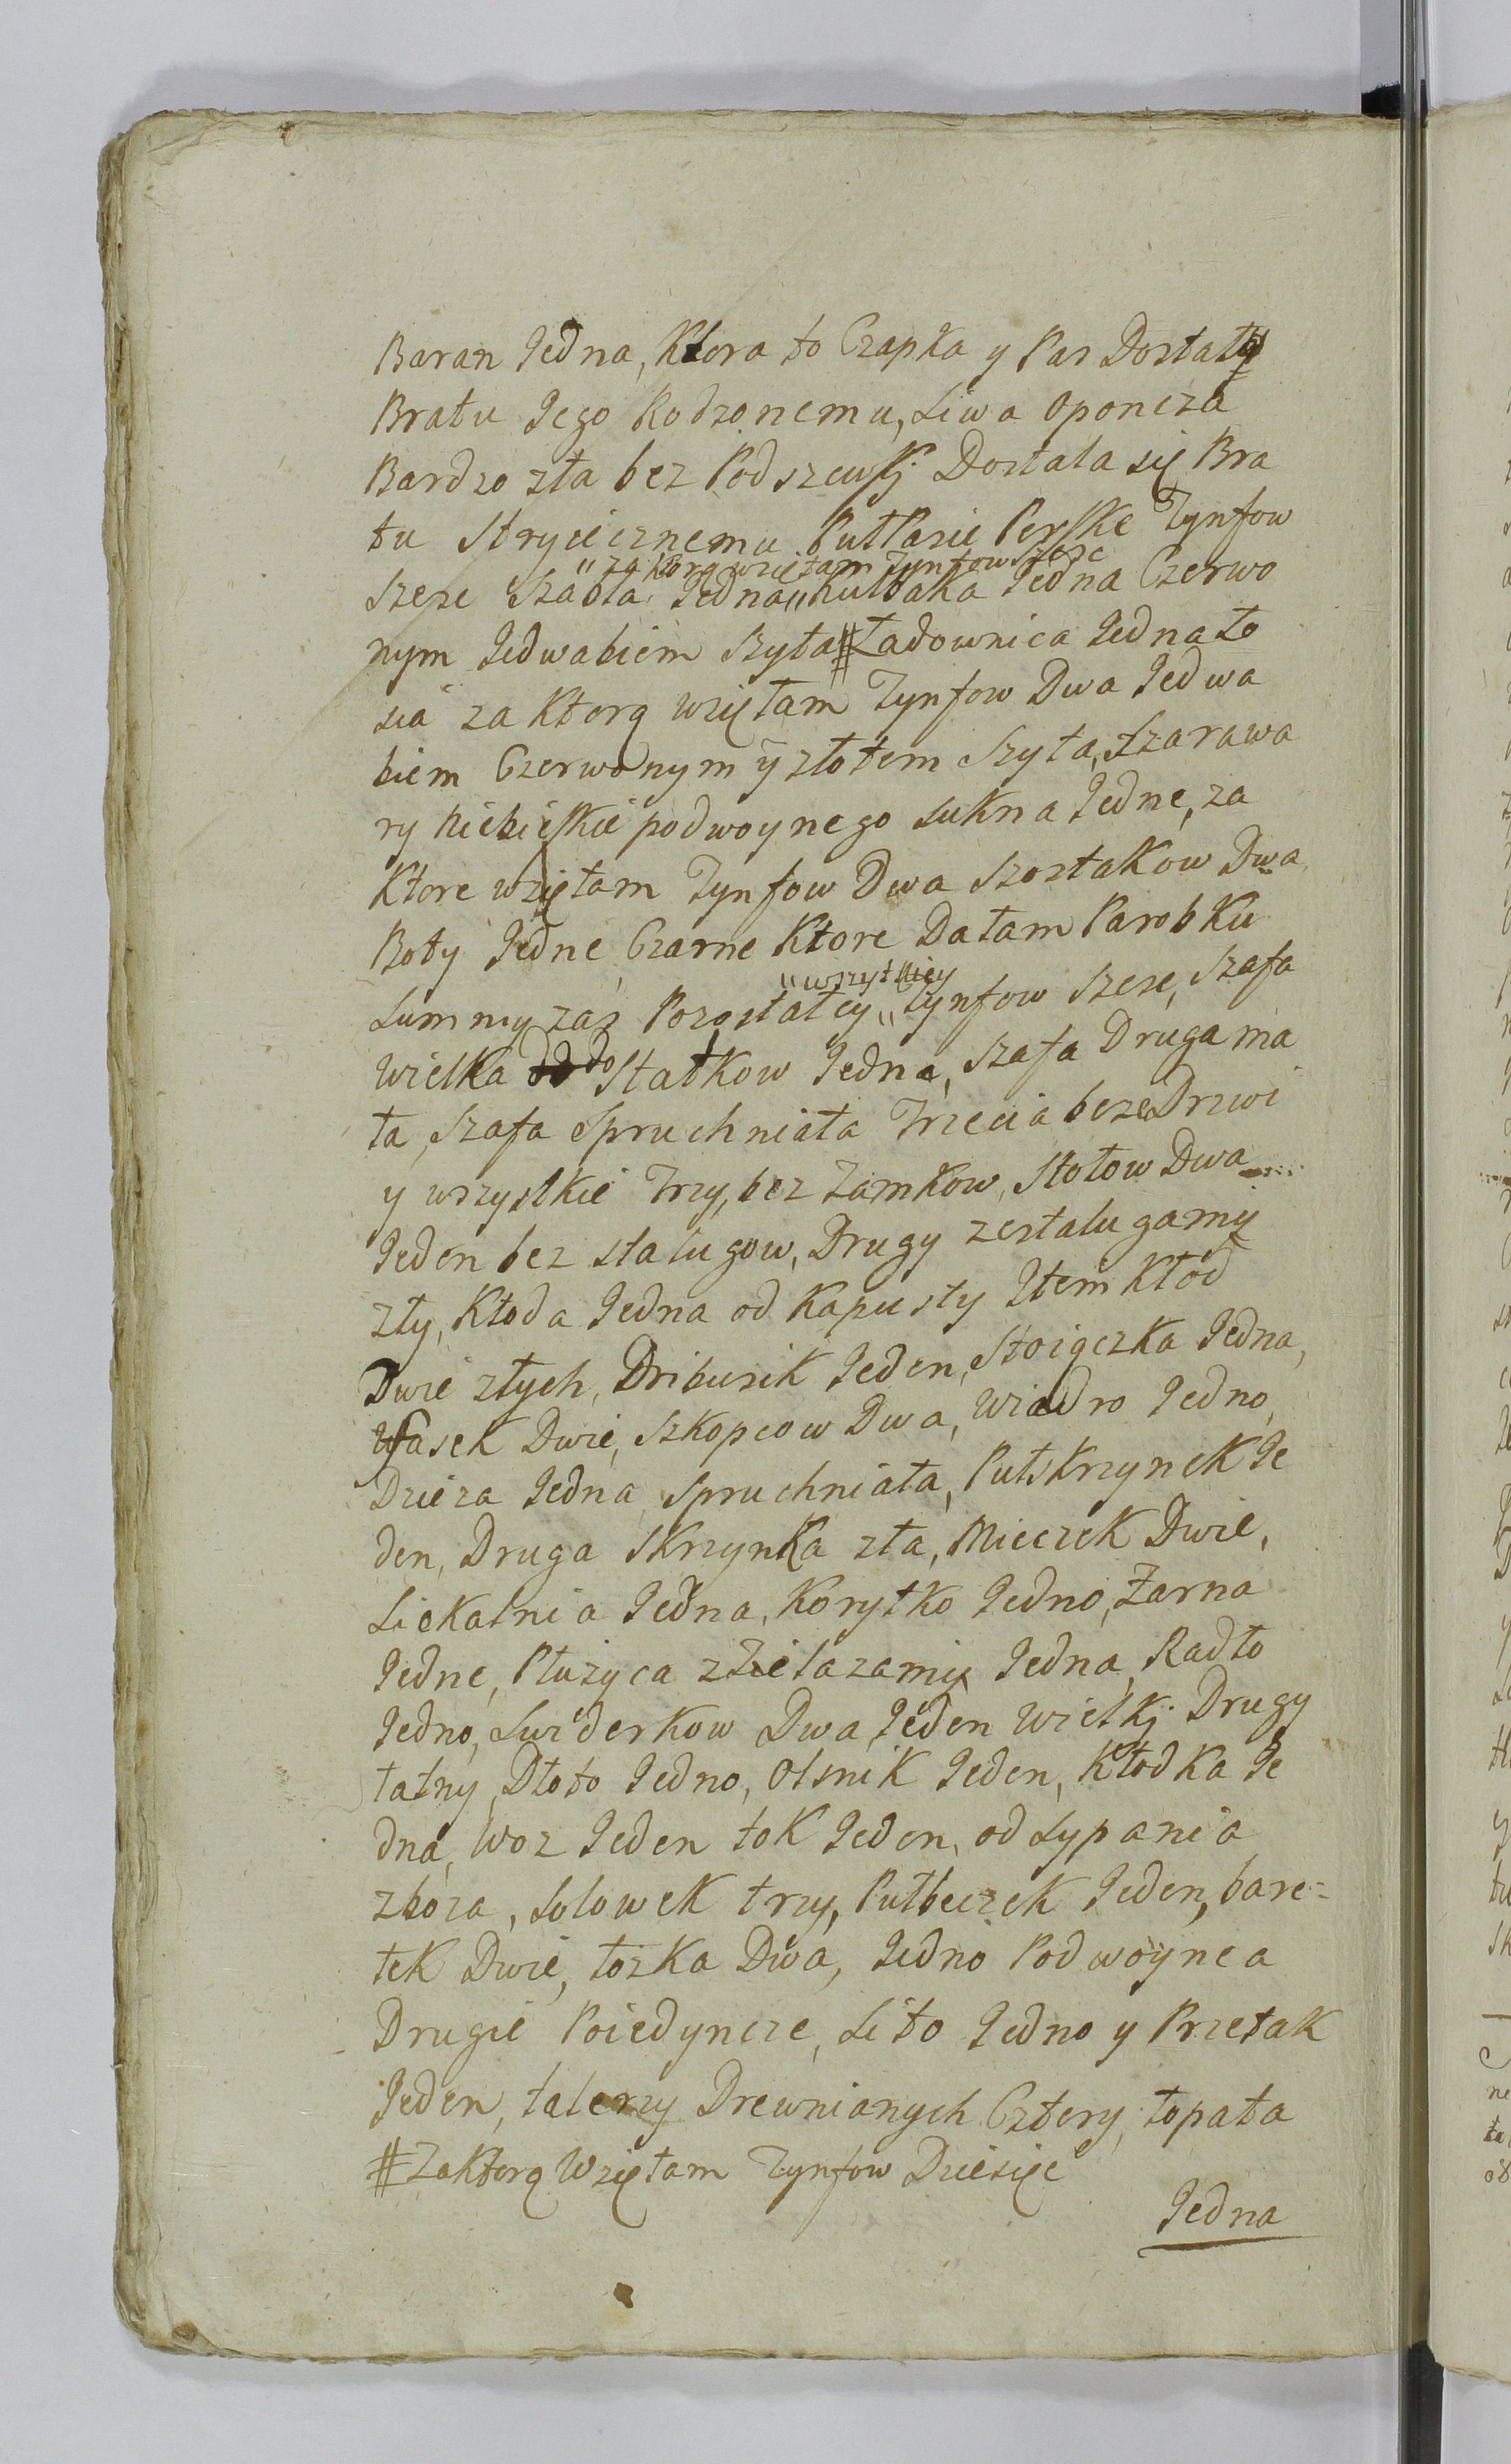 Baran Jedna, Ktora to Czapka y Pas Dostały
Bratu Jego Rodzonemu, Siwa Oponcza
Bardzo zła bez Podszewkj Dostala się Bra
tu Stryiecznemu PułPasie Perskie Tynfow
"za ktorą wzięłam Tynfow szesc
szesc Szabla Jedna " Kulbaka Jedna Czerwo
nym Jedwabiem Szyta # Ładownica Jedna Ło
sia za Ktorą wzięłam Tynfow Dwa Jedwa
biem Czerwonym ÿ złotem Szyta, Szarawa
ry Niebieskie podwoynego sukna Jedne, za
Ktore wzięłam Tynfow Dwa Szostakow Dwa
Boty Jedne Czarne Ktore Dałam Parobku
"wszystkiey
Summy zas Pozostałey " Tynfow szesc, Szafa
Wielka do Statkow Jedna, Szafa Druga ma
ła, Szafa Spruchniała Trzecia beze Drzwi
y wszystkie Trzy, bez Zamkow, Stołow Dwa
Jeden bez stalugow, Drugy zestalugamy
zły, Kłoda Jedna od Kapusty Jtem Kłod
Dwie złych, Dribusik Jeden, Stoiączka Jedna,
Wasek Dwie, Szkopcow Dwa, Wiadro Jedno,
Dzieza Jedna Spruchniała, Pułskrzynek Je
den, Druga Skrzynka zła, Mieczek Dwie,
Siekalnia Jedna, Korytko Jedno, Zarna
Jedne, Płużyca zżelazamy Jedna, Radło
Jedno, Swiderkow Dwa Jeden Wielkj Drugy
łatny, Dłoto Jedno, Osnik Jeden, Kłodka Je
dna, Woz Jeden tok Jeden, od sypania
zboza, Solowek trzy, Pułbeczek Jeden, bare=
łek Dwie, łozka Dwa, Jedno Podwoyne a
Drugie Poiedyncze, Sito Jedno y Przetak
Jeden, talerzy Drewnianych Cztery, łopata
# Zaktorą Wzięłam Tynfow Dziesięć
Jedna